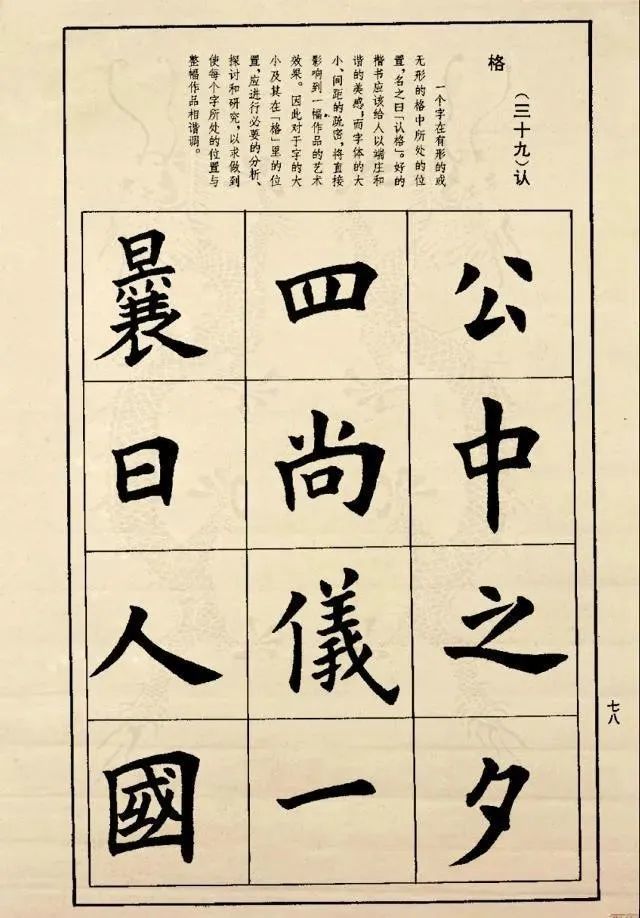 （三十九）认
格
一个字在有形的或
无形的格中所处的位
置，名之曰「认格」。好的
楷书应该给人以端庄和
谐的美感；而字体的大
小、间距的疏密，将直接
影响到一幅作品的艺术
效果。因此对于字的大
小及其在「格」里的位
置，应进行必要的分析、
探讨和研究，以求做到
使每个字所处的位置与
整幅作品相谐调。
公中之夕
四尚儀一
曩日人國
七八